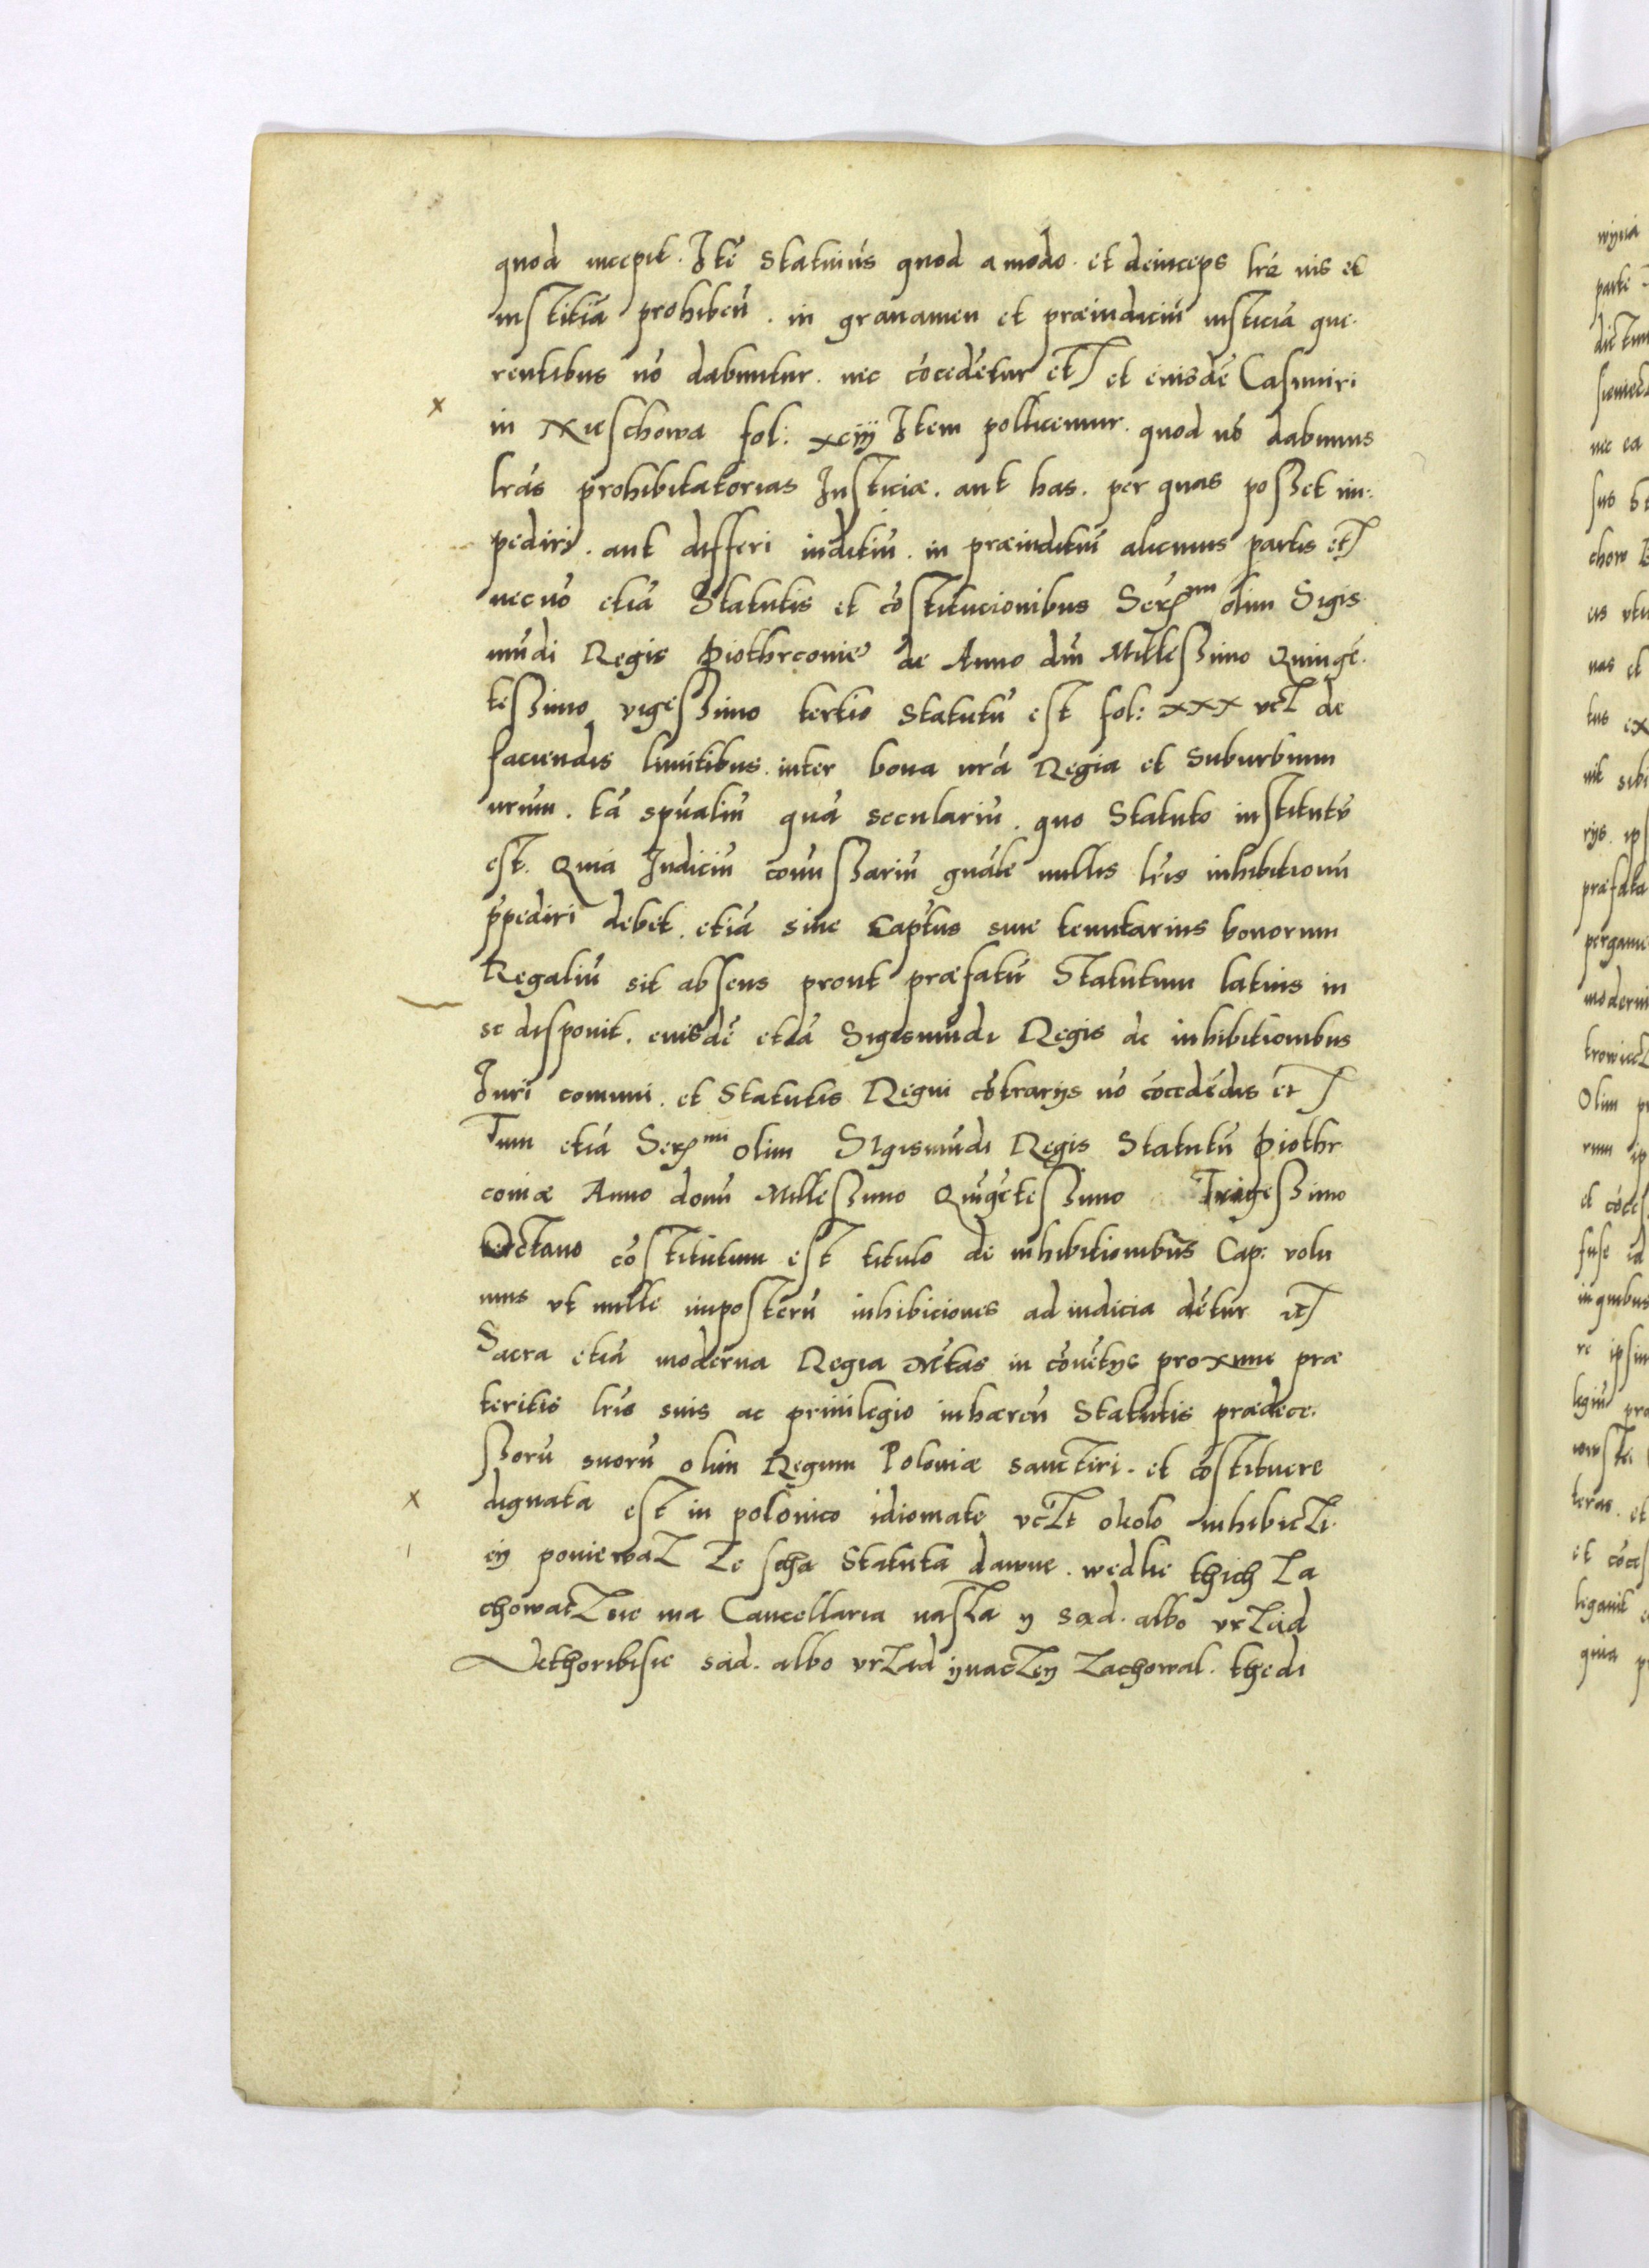 quod incepit. Itē Statuim̃s quod a modo. et deinceps lr̃e nis et
iustitiā prohibeñ. in grauamen et præiudiciū iusticiā que-
rentibus nō dabuntur. nec cōcedētur etc̃ et eiusdē Casimiri
in Nieschowa fol: xciij Item pollicemur. quod nō dabimus
lr̃as prohibitatorias Iusticiæ. aut has. per quas posset im-
pediri. aut differi iuditiū. in præiuditiū alicuius partis etc̃
necnō etiā Statutis et cōstitucionibus Sermi olim Sigis-
mūdi Regis Piothrconie de Anno dñi Millessimo Quinge-
tessimo vigessimo tertio Statutū est fol: xxx vcz de
faciendis limitibus. inter bona nr̃a Regia et Suburbium
nrūm. tā spūaliū quā seculariū. quo Statuto institutū
est. Quia Iudiciū comissariū gnāle nullis lr̃is inhibitionū
p̃pediri debet. etiā siue Captus siue tenutarius bonorum
Regaliū sit absens prout præfatū Statutum latius in
se disponit. eiusdē etiā Sigismūdi Regis de inhibitionibus
Iuri comuni. et Statutis Regni cōtrarijs nō cōcedēdis etc̃
Tum etiā Sermi olim Sigismūdi Regis Statutū Piothr
coniæ Anno domī Millessimo Quīgētessimo Trigessimo
Octauo cōstitutum est titulo de inhibitionibus Cap: volu
mus vt nulle imposterū inhibiciones ad iudicia dētur etc̃
Sacra etiā moderna Regia Mtãs in cōuētijs proxime præ
teritis lr̃is suis ac priuilegio inhæreñ Statutis prædece-
ssorū suorū olim Regum Poloniæ sanctiri. et cōstituere
dignata est in polonico idiomate vczt okolo inhibiczi-
ej poniewaz ze scha Statuta dawne. wedlie thich za
chowacz sie ma Cancellaria nasza y sad. albo vrzad
Jethoribisie sad. albo vrzad ynaczey zachowal. thedi